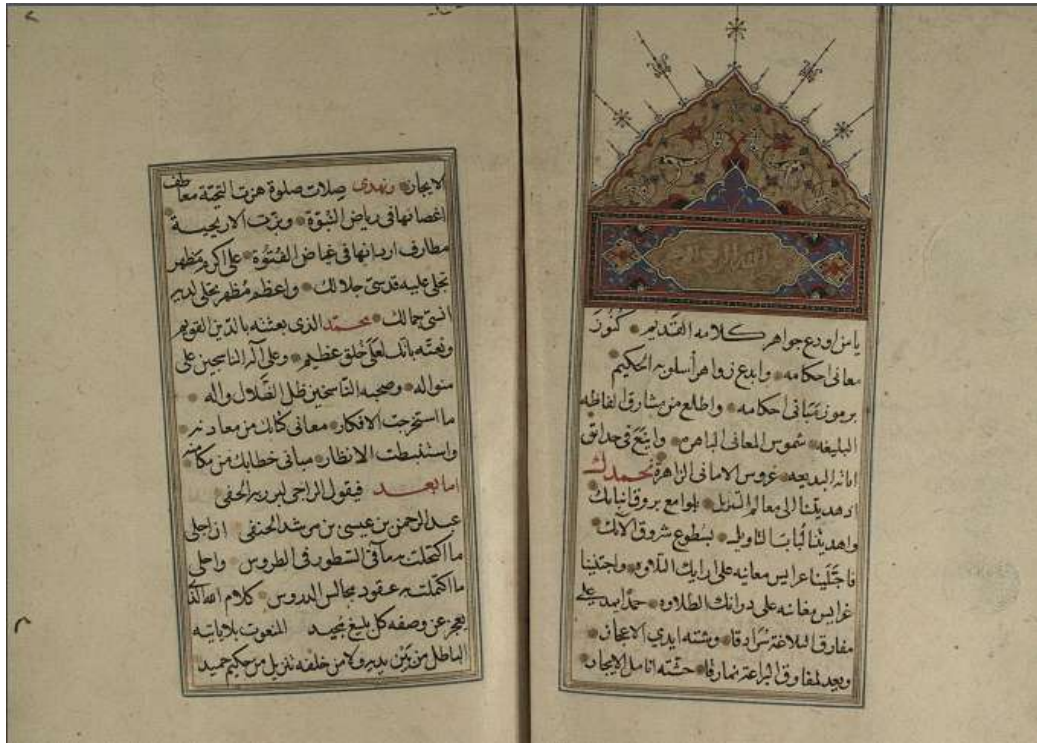 يا من اودع جواهر كلامه القديم كنوز
معانى احكامه وابدع زواهر أسلوبه الحكيم
برموز مبانى احكامه واطلع من مشارق الفاظه
البليغه شموس المعانى الباهره واينع فى حدائق
البديعه غروس الامانى الزاهرة نحمدك
اذ هديتنا الى معالم التنزيل بلوامع بروق
واهديتنا لباب التاويل بسطوع شروق
فاجتلينا عرايس معانيه على التلاوه واجتنينا
غرايس الطلاوه حمدا
مفارق البلاغة سرادقا وشته ايدي الاعجاز
البراعة نمارقا حشته انامل الايجاز
الايجاز ونهدى صلات صلوة هزت التحية معاطف
اغصانها فى رياض النبوّة وبزت الاريحية
مطارف اردانها فى غياض الفتوّة على اكرم مَظهر
تجلى عليه قدسىّ جلالك واعظم مُظهر تجلى لديه
انسىّ جمالك محمّد الذى بعثته بالدّين القويم
ونعتّه بانّك لعلى خُلق عظيم وعلى آله الناسجين على
منواله وصحبه النّاسخين ظل الضّلال واله
ما استخرجت الافكار معانى كتابك من معادنه
واستنبطت الانظار مبانى خطابك من مكامنه
اما بعد فيقول الراجى لبر ربه الحفى
عبد الرحمن بن عيسى بن مرشد الحنفى ان اجلى
ما اكتحلت به مآقى السّطور فى الطروس واحلى
ما اكتملت به عقود مجالس الدروس كلام الله الذى
يعجز عن وصفه كل بليغ مجيد المنعوت بلا ياتيه
الباطل من بين يديه ولا من خلفه تنزيل من حكيم حميد